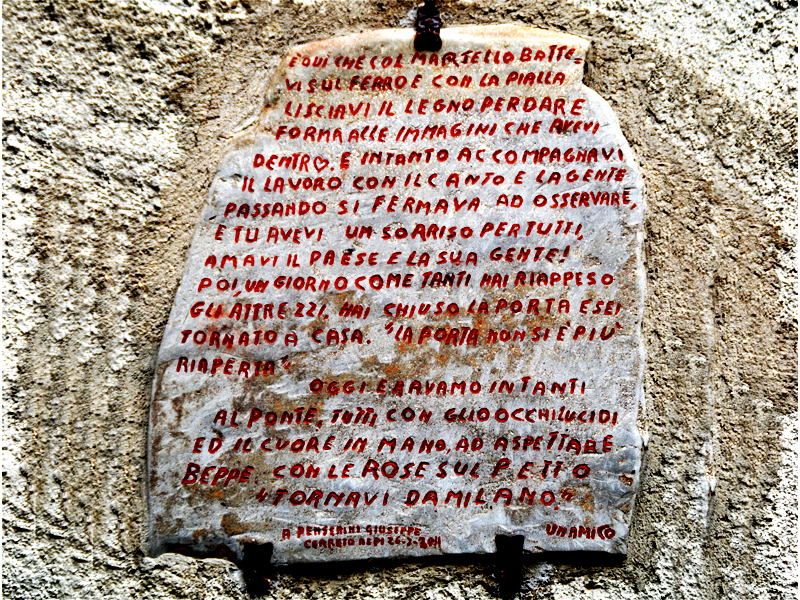 E QUI CHE COL MARTELLO BATTE=
VI SUL FERRO E CON LA PIALLA
LISCIAVI IL LEGNO PER DARE
FORMA ALLE IMMAGINI CHE AVEVI
DENTRO. E INTANTO ACCOMPAGNAVI
IL LAVORO CON IL CANTO E LA GENTE
PASSANDO SI FERMAVA AD OSSERVARE,
E TU AVEVI UN SORRISO PER TUTTI,
AMAVI IL PAESE E LA SUA GENTE!
POI, UN GIORNO COME TANTI HAI RIAPPESO
GLI ATTREZZI, HAI CHIUSO LA PORTA E SEI
TORNATO A CASA. "LA PORTA NON SI È PIÙ
RIAPERTA"
OGGI ERAVAMO IN TANTI
AL PONTE, TUTTI CON GLI OCCHI LUCIDI
ED IL CUORE IN MANO, AD ASPETTARE
BEPPE. CON LE ROSE SUL PETTO
"TORNAVI DA MILANO."
A GIUSEPPE UN AMICO
CERRETO